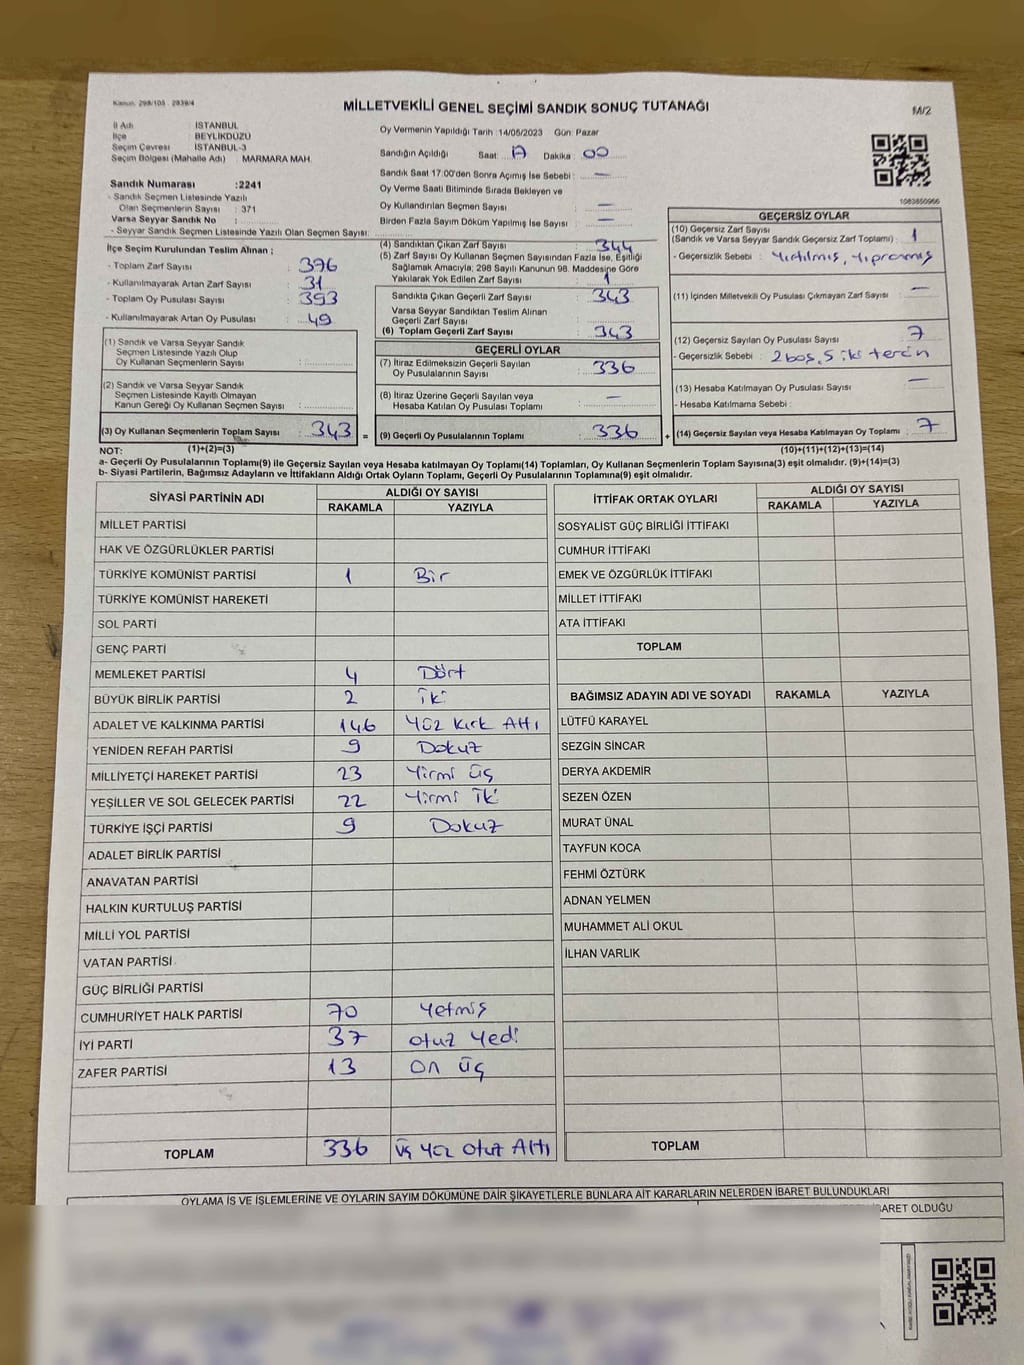 Kanun. 298/105 - 2839/4
MİLLETVEKİLİ GENEL SEÇİMİ SANDIK SONUÇ TUTANAĞI
M/2
İl Adı : İSTANBUL
İlçe : BEYLİKDÜZÜ
Seçim Çevresi : İSTANBUL-3
Seçim Bölgesi (Mahalle Adı) : MARMARA MAH.
Oy Vermenin Yapıldığı Tarih :14/05/2023 Gün: Pazar
Sandığın Açıldığı Saat: Dakika : 00
Sandık Saat 17:00'den Sonra Açılmış İse Sebebi : —
Oy Verme Saati Bitiminde Sırada Bekleyen ve
Oy Kullandırılan Seçmen Sayısı : —
Birden Fazla Sayım Döküm Yapılmış İse Sayısı : —
Sandık Numarası :2241
- Sandık Seçmen Listesinde Yazılı
Olan Seçmenlerin Sayısı : 371
Varsa Seyyar Sandık No :
- Seyyar Sandık Seçmen Listesinde Yazılı Olan Seçmen Sayısı:
1083850966
İlçe Seçim Kurulundan Teslim Alınan ;
- Toplam Zarf Sayısı : 376
- Kullanılmayarak Artan Zarf Sayısı : 31
- Toplam Oy Pusulası Sayısı : 393
- Kullanılmayarak Artan Oy Pusulası : 49
(1) Sandık ve Varsa Seyyar Sandık
Seçmen Listesinde Yazılı Olup
Oy Kullanan Seçmenlerin Sayısı :
(2) Sandık ve Varsa Seyyar Sandık
Seçmen Listesinde Kayıtlı Olmayan
Kanun Gereği Oy Kullanan Seçmen Sayısı :
(3) Oy Kullanan Seçmenlerin Toplam Sayısı : 343 =
(4) Sandıktan Çıkan Zarf Sayısı : 344
(5) Zarf Sayısı Oy Kullanan Seçmen Sayısından Fazla İse, Eşitliği
Sağlamak Amacıyla; 298 Sayılı Kanunun 98. Maddesine Göre
Yakılarak Yok Edilen Zarf Sayısı : 1
Sandıkta Çıkan Geçerli Zarf Sayısı : 343
Varsa Seyyar Sandıktan Teslim Alınan
Geçerli Zarf Sayısı :
(6) Toplam Geçerli Zarf Sayısı : 343
GEÇERLİ OYLAR
(7) İtiraz Edilmeksizin Geçerli Sayılan
Oy Pusulalarının Sayısı : 336
(8) İtiraz Üzerine Geçerli Sayılan veya
Hesaba Katılan Oy Pusulası Toplamı : —
(9) Geçerli Oy Pusulalarının Toplamı : 336 +
GEÇERSİZ OYLAR
(10) Geçersiz Zarf Sayısı
(Sandık ve Varsa Seyyar Sandık Geçersiz Zarf Toplamı) : 1
- Geçersizlik Sebebi : Yırtılmış, Yıpranmış
(11) İçinden Milletvekili Oy Pusulası Çıkmayan Zarf Sayısı : —
(12) Geçersiz Sayılan Oy Pusulası Sayısı : 7
- Geçersizlik Sebebi : 2 boş, 5 iki tercih
(13) Hesaba Katılmayan Oy Pusulası Sayısı : —
- Hesaba Katılmama Sebebi :
(14) Geçersiz Sayılan veya Hesaba Katılmayan Oy Toplamı : 7
NOT: (1)+(2)=(3) (10)+(11)+(12)+(13)=(14)
a- Geçerli Oy Pusulalarının Toplamı(9) ile Geçersiz Sayılan veya Hesaba katılmayan Oy Toplamı(14) Toplamları, Oy Kullanan Seçmenlerin Toplam Sayısına(3) eşit olmalıdır. (9)+(14)=(3)
b- Siyasi Partilerin, Bağımsız Adayların ve İttifakların Aldığı Ortak Oyların Toplamı, Geçerli Oy Pusulalarının Toplamına(9) eşit olmalıdır.
SİYASİ PARTİNİN ADI ALDIĞI OY SAYISI
RAKAMLA YAZIYLA
MİLLET PARTİSİ
HAK VE ÖZGÜRLÜKLER PARTİSİ
TÜRKİYE KOMÜNİST PARTİSİ 1 Bir
TÜRKİYE KOMÜNİST HAREKETİ
SOL PARTİ
GENÇ PARTİ
MEMLEKET PARTİSİ 4 Dört
BÜYÜK BİRLİK PARTİSİ 2 İki
ADALET VE KALKINMA PARTİSİ 146 Yüz Kırk Altı
YENİDEN REFAH PARTİSİ 9 Dokuz
MİLLİYETÇİ HAREKET PARTİSİ 23 Yirmi üç
YEŞİLLER VE SOL GELECEK PARTİSİ 22 Yirmi İki
TÜRKİYE İŞÇİ PARTİSİ 9 Dokuz
ADALET BİRLİK PARTİSİ
ANAVATAN PARTİSİ
HALKIN KURTULUŞ PARTİSİ
MİLLİ YOL PARTİSİ
VATAN PARTİSİ
GÜÇ BİRLİĞİ PARTİSİ
CUMHURİYET HALK PARTİSİ 70 Yetmiş
İYİ PARTİ 37 otuz Yedi
ZAFER PARTİSİ 13 on üç
TOPLAM 336 üç Yüz Otuz Altı
İTTİFAK ORTAK OYLARI ALDIĞI OY SAYISI
RAKAMLA YAZIYLA
SOSYALİST GÜÇ BİRLİĞİ İTTİFAKI
CUMHUR İTTİFAKI
EMEK VE ÖZGÜRLÜK İTTİFAKI
MİLLET İTTİFAKI
ATA İTTİFAKI
TOPLAM
BAĞIMSIZ ADAYIN ADI VE SOYADI RAKAMLA YAZIYLA
LÜTFÜ KARAYEL
SEZGİN SİNCAR
DERYA AKDEMİR
SEZEN ÖZEN
MURAT ÜNAL
TAYFUN KOCA
FEHMİ ÖZTÜRK
ADNAN YELMEN
MUHAMMET ALİ OKUL
İLHAN VARLIK
TOPLAM
OYLAMA İŞ VE İŞLEMLERİNE VE OYLARIN SAYIM DÖKÜMÜNE DAİR ŞİKAYETLERLE BUNLARA AİT KARARLARIN NELERDEN İBARET BULUNDUKLARI
BARET OLDUĞU